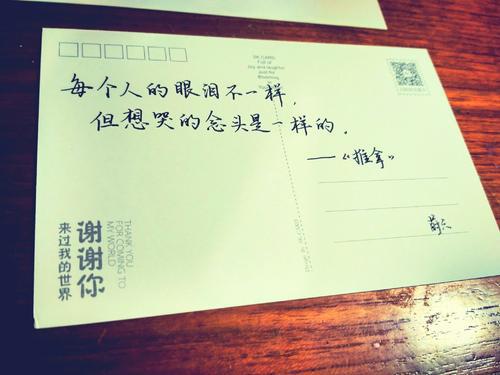 每个人的眼泪不一样，
但想哭的念头是一样的。
——《推拿》
谢谢你
来过我的世界
THANK YOU
FOR COMING TO
MY WORLD